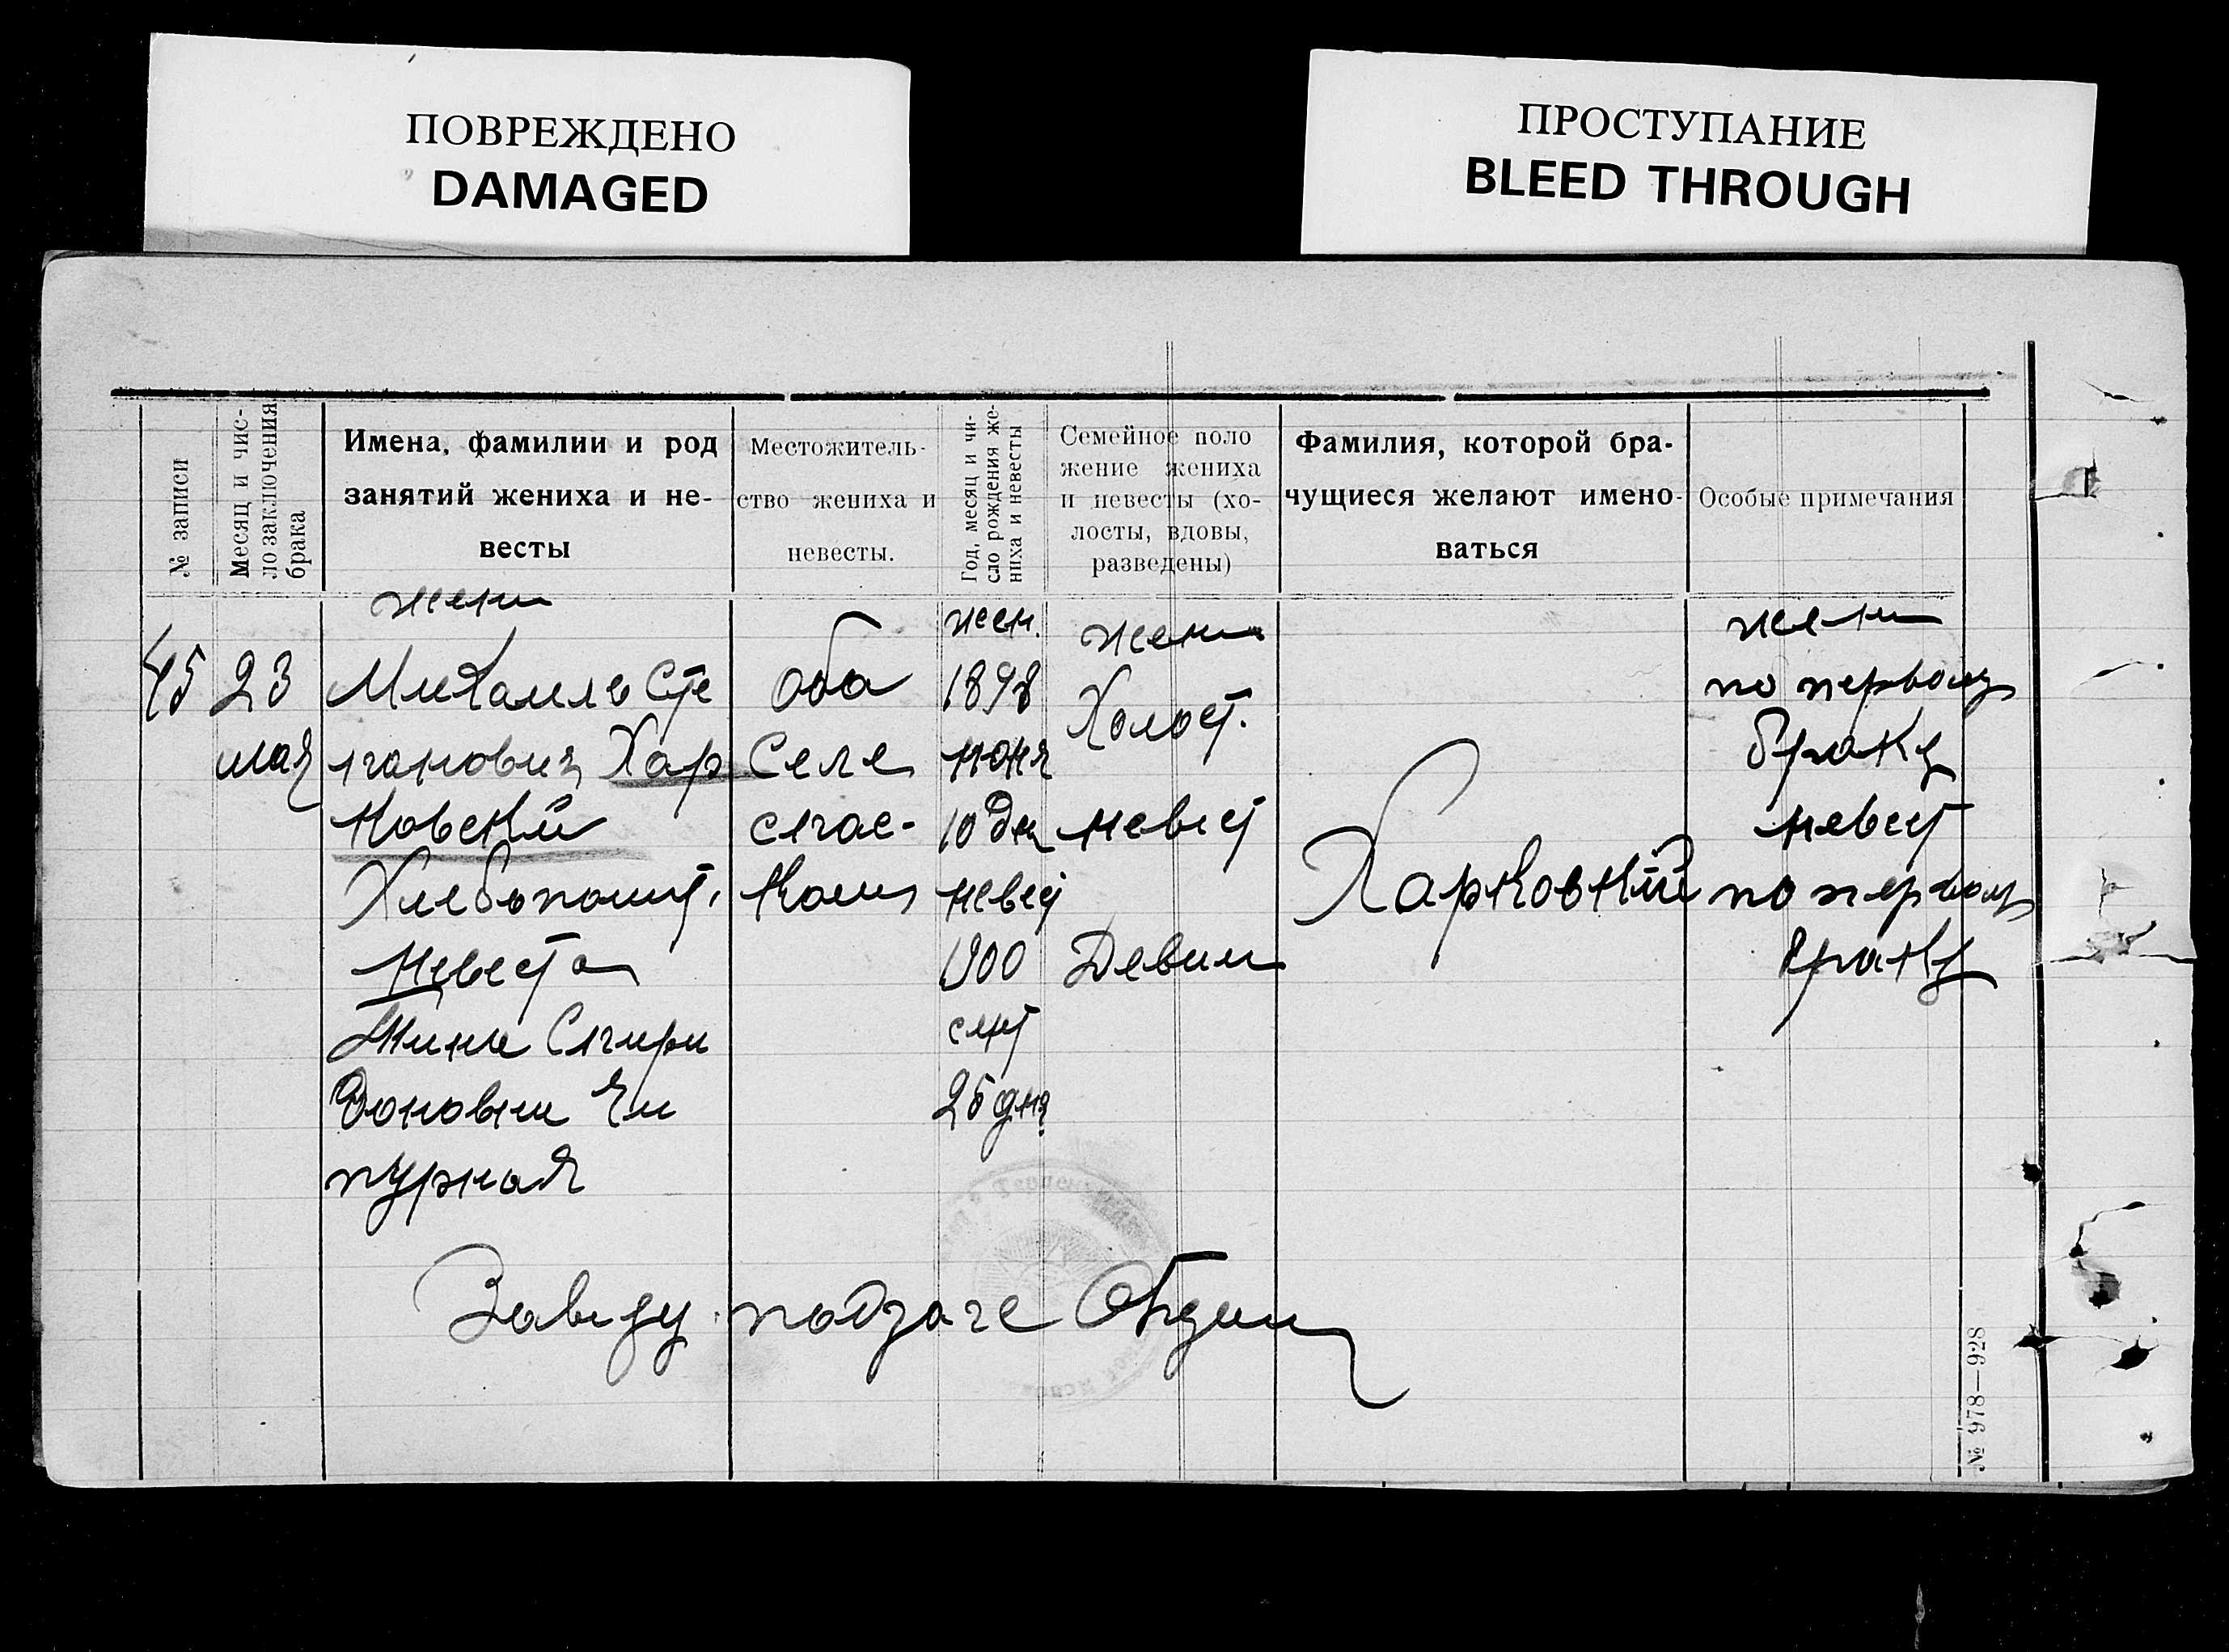 ПОВРЕЖДЕНО
DAMAGED
ПРОСТУПАНИЕ
BLEED THROUGH
№ записи
Месяц и чис-
ло заключения
брака
Имена, фамилии и род
занятий жениха и не-
весты
Местожитель-
ство жениха и
невесты.
Год, месяц и чи-
сло рождения же-
ниха и невесты
Семейное поло
жение жениха
и невесты (хо-
лосты, вдовы,
разведены)
Фамилия, которой бра-
чущиеся желают имено-
ваться
Особые примечания
45
23
мая
жени
Михаилъ Сте
пановичъ Хар
ковский
Хлебопашт.
Невеста
Спири
доновна Чи
пурная
оба
Селе
спас-
ком
жен.
1898
июня
10 дня
невест
1900
сент
25 дня
жени
Холост.
невест
Девиц
Харковкий
жени
по первому
браку
невест
по первому
браку
Заведу подзагс
№ 978—928